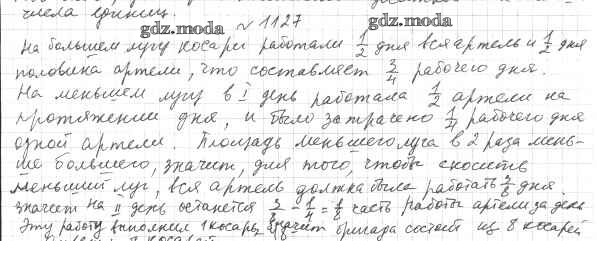 числа единиц.
gdz.moda № 1127 gdz.moda
На большем лугу косари работали 1/2 дня вся артель и 1/2 дня
половина артели, что составляет 3/4 рабочего дня.
На меньшем лугу в I день работала 1/2 артели на
протяжении дня, и было затрачено 1/4 рабочего дня
одной артели. Площадь меньшего луга в 2 раза мень-
ше большего, значит, для того, чтобы скосить
меньший луг, вся артель должна была работать 3/8 дня.
значит на II день останется 3/8 - 1/4 = 1/8 часть работы артели за день
Эту работу выполнил 1 косарь, значит бригада состоит из 8 косарей